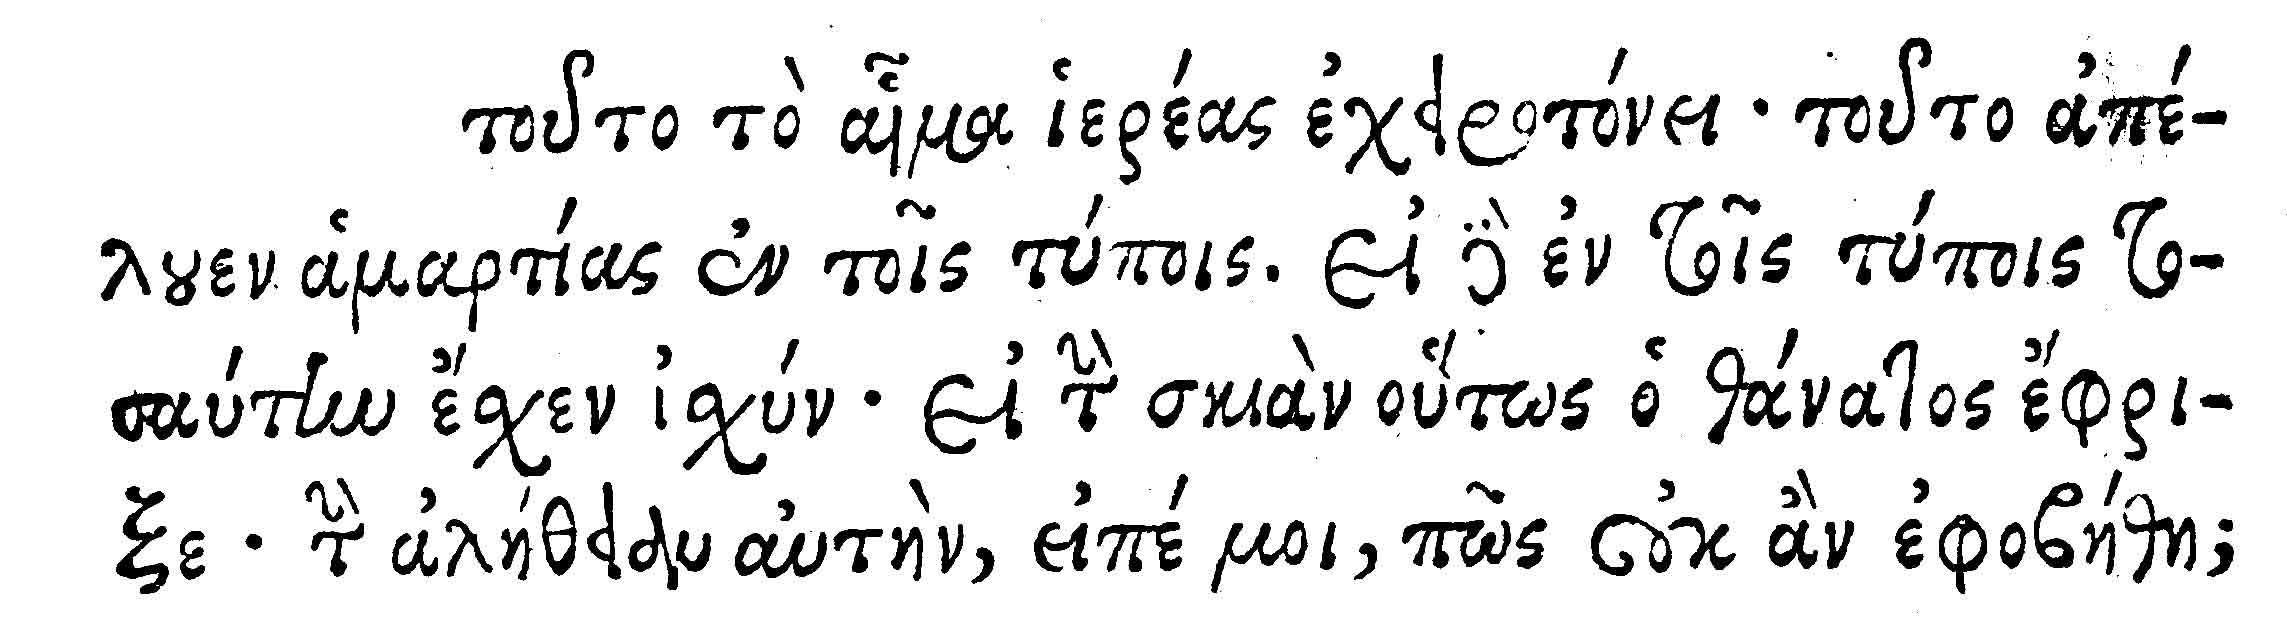 τοῦτο τὸ αἷμα ἱερέας ἐχειροτόνει · τοῦτο ἀπέ-
λουεν ἁμαρτίας ἐν τοῖς τύποις. εἰ δὲ ἐν τοῖς τύποις το-
σαύτην ἔσχεν ἰσχύν · εἰ τὴν σκιὰν οὕτως ὁ θάνατος ἔφρι-
ξε · τὴν ἀλήθειαν αὐτὴν, εἰπέ μοι, πῶς οὐκ ἂν ἐφοβήθη;